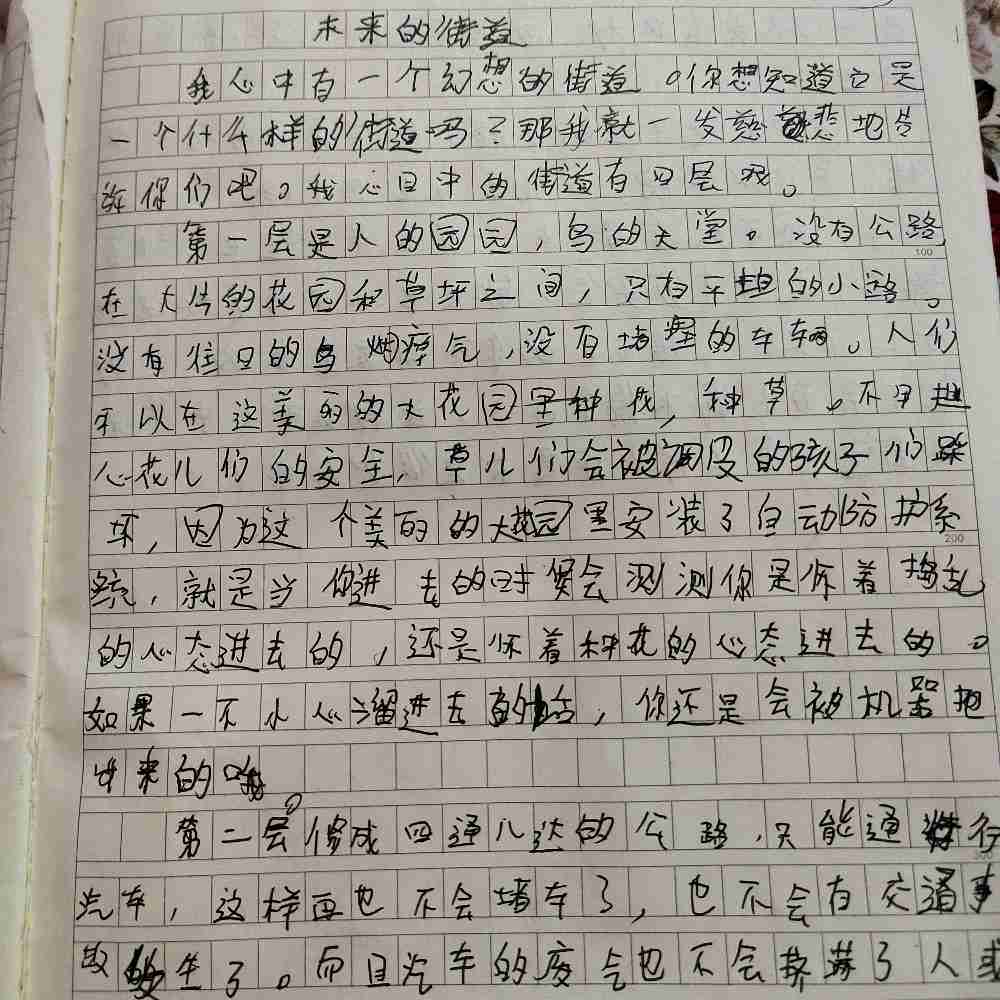 未来的街道
我心中有一个幻想的街道。你想知道它是
一个什么样的街道吗？那我就一发慈悲地告
诉你们吧。我心目中的街道有四层呢。
第一层是人的园园，鸟的天堂。没有公路
100
在大片的花园和草坪之间，只有平坦的小路。
没有往日的乌烟瘴气，没有堵塞的车辆。人们
可以在这美丽的大花园里种花，种草。不用担
心花儿们的安全，草儿们会被调皮的孩子们踩
坏，因为这个美丽的大花园里安装了自动防护系
200
统，就是当你进去的时候会测测你是怀着捣乱
的心态进去的，还是怀着种花的心态进去的。
如果一不小心溜进去的话，你还是会被机器抱
出来的哦。
第二层修成四通八达的公路，只能通行
300
汽车，这样再也不会堵车了，也不会有交通事
故发生了。而且汽车的废气也不会弄了人或